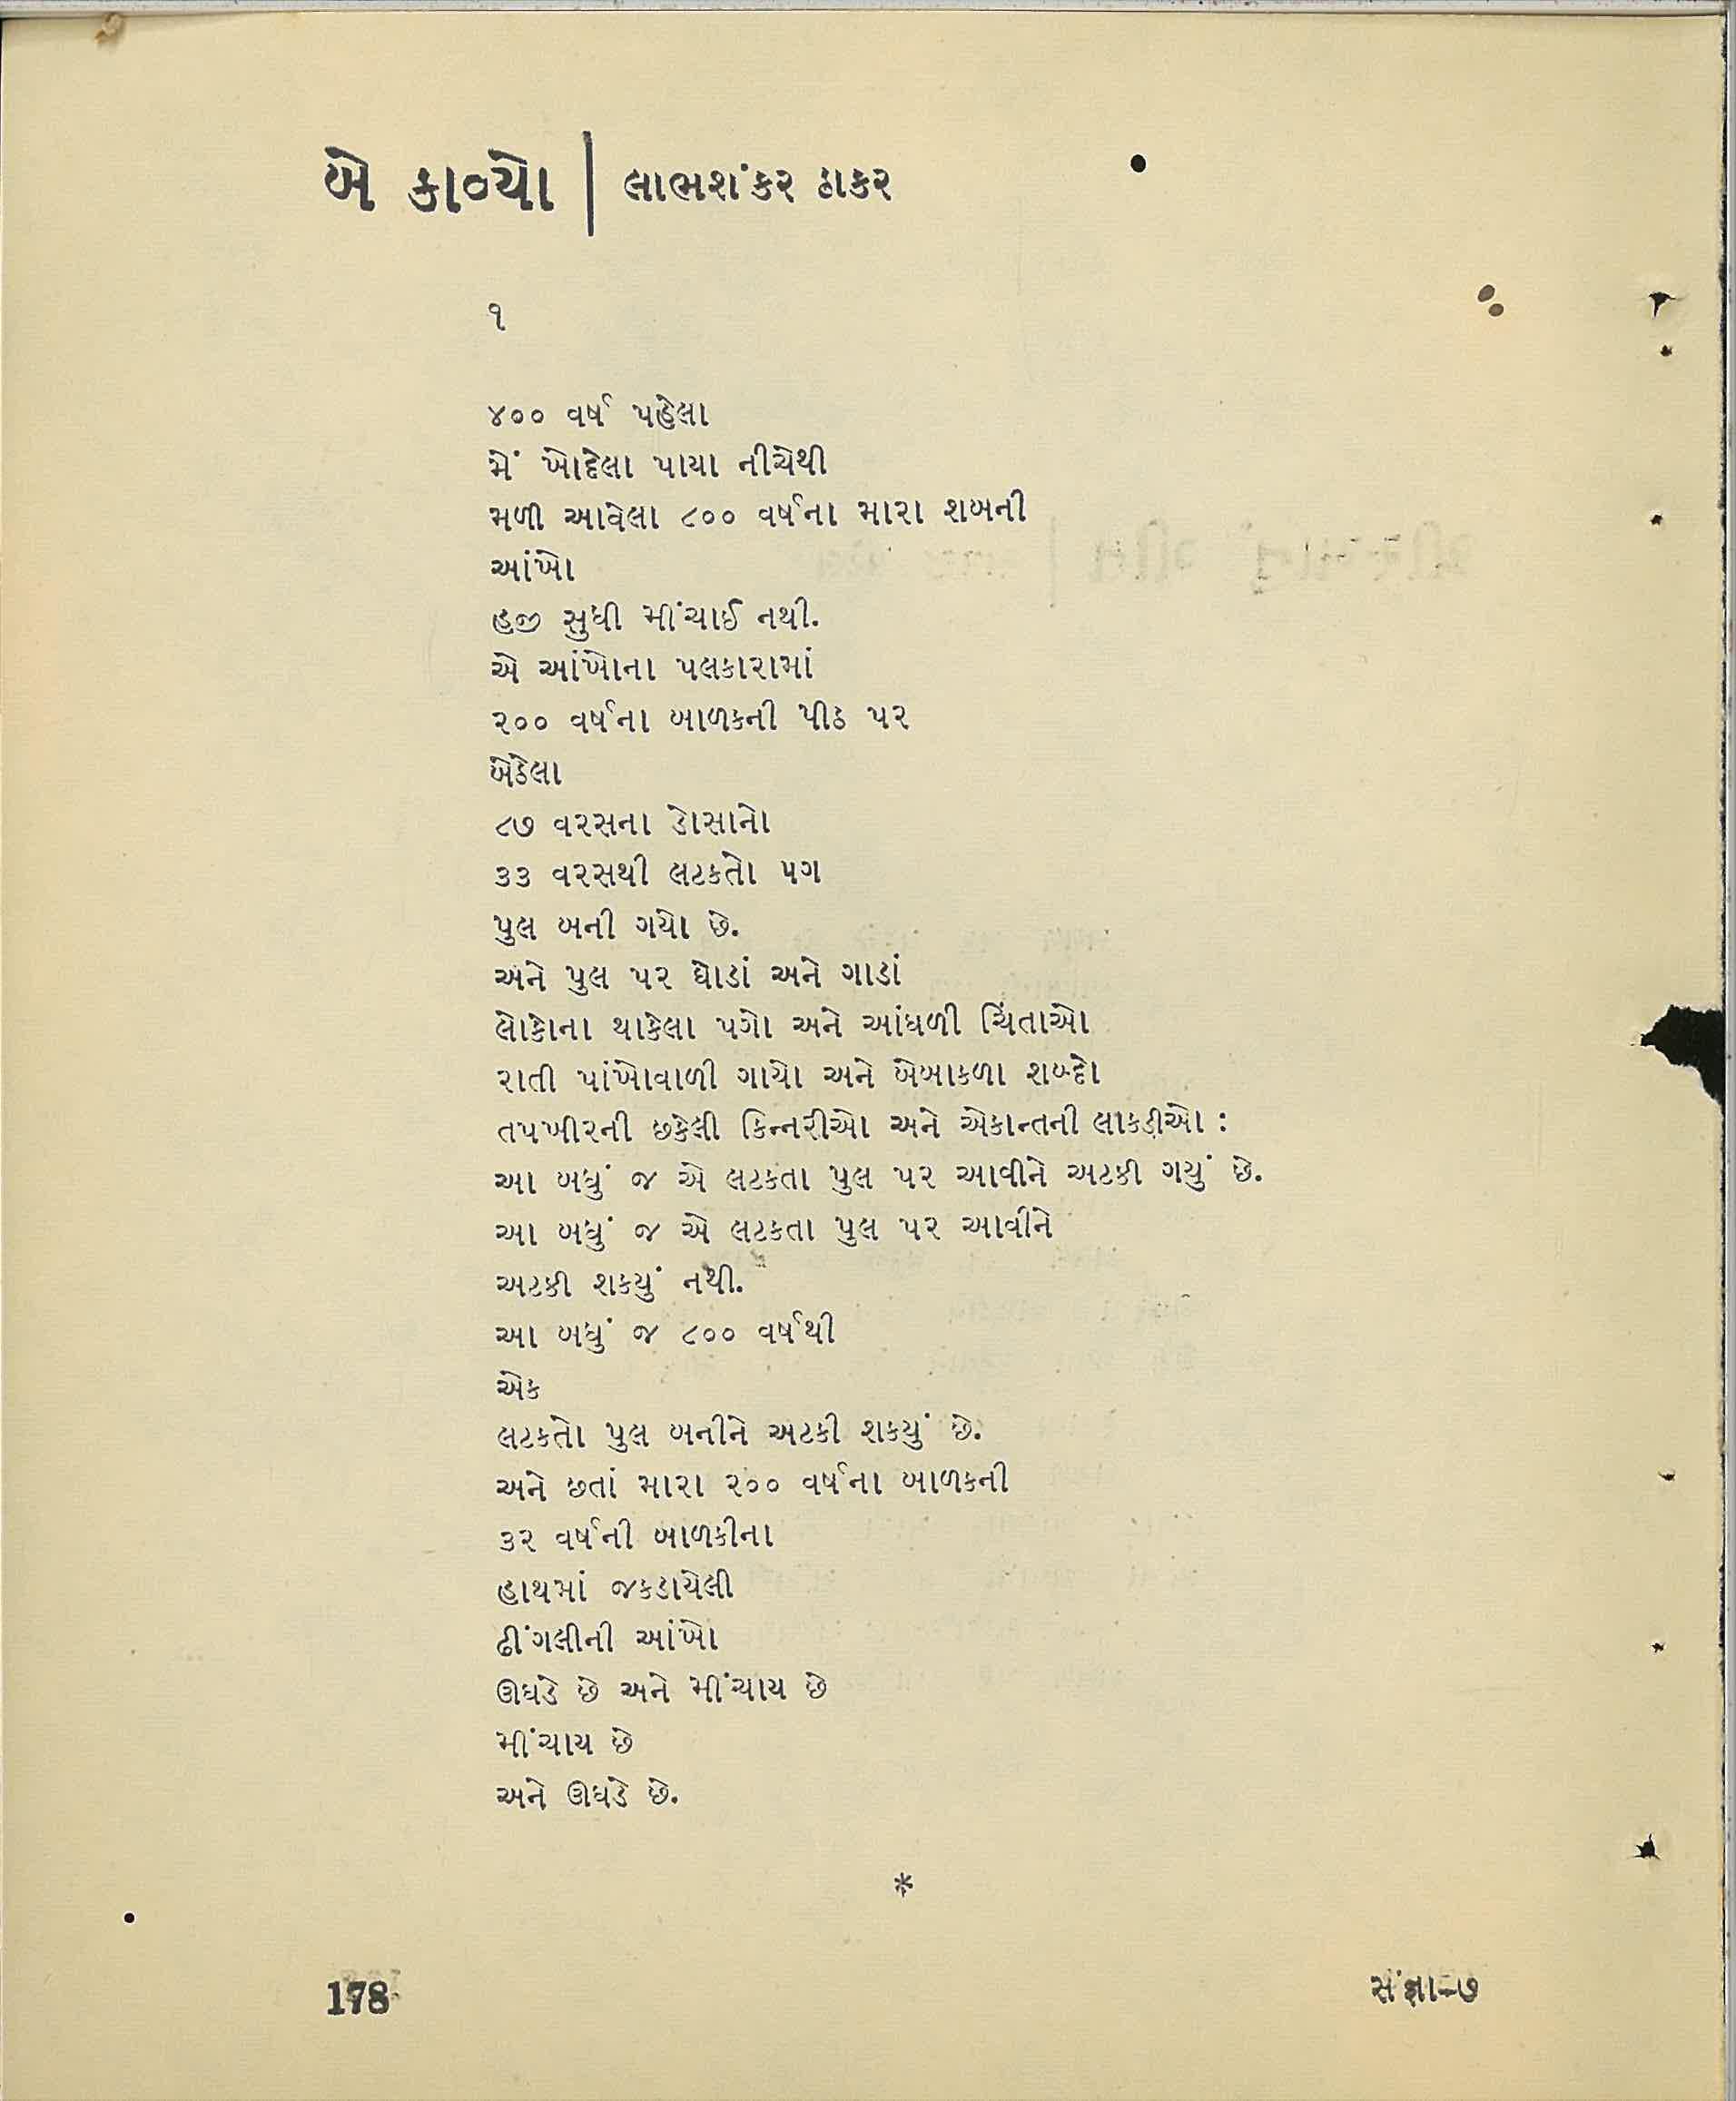 બે કાવ્યો | લાભશંકર ઠાકર
૧
૪૦૦ વર્ષ પહેલા
મેં ખોદેલા પાયા નીચેથી
મળી આવેલા ૮૦૦ વર્ષના મારા શબની
આંખો
હજી સુધી મીંચાઈ નથી.
એ આંખોના પલકારામાં
૨૦૦ વર્ષના બાળકની પીઠ પર
બેઠેલા
૮૭ વરસના ડોસાનો
૩૩ વરસથી લટકતો પગ
પુલ બની ગયો છે.
અને પુલ પર ઘોડાં અને ગાડાં
લોકોના થાકેલા પગો અને આંધળી ચિંતાઓ
રાતી પાંખોવાળી ગાયો અને બેબાકળા શબ્દો
તપખીરની છકેલી કિન્નરીઓ અને એકાન્તની લાકડીઓ :
આ બધું જ એ લટકતા પુલ પર આવીને અટકી ગયું છે.
આ બધું જ એ લટકતા પુલ પર આવીને
અટકી શકયું નથી.
આ બધું જ ૮૦૦ વર્ષથી
એક
લટકતો પુલ બનીને અટકી શકયું છે.
અને છતાં મારા ૨૦૦ વર્ષના બાળકની
૩૨ વર્ષની બાળકીના
હાથમાં જકડાયેલી
ઢીંગલીની આંખો
ઊઘડે છે અને મીંચાય છે
મીંચાય છે
અને ઊઘડે છે.
*
178
સંજ્ઞા-૭